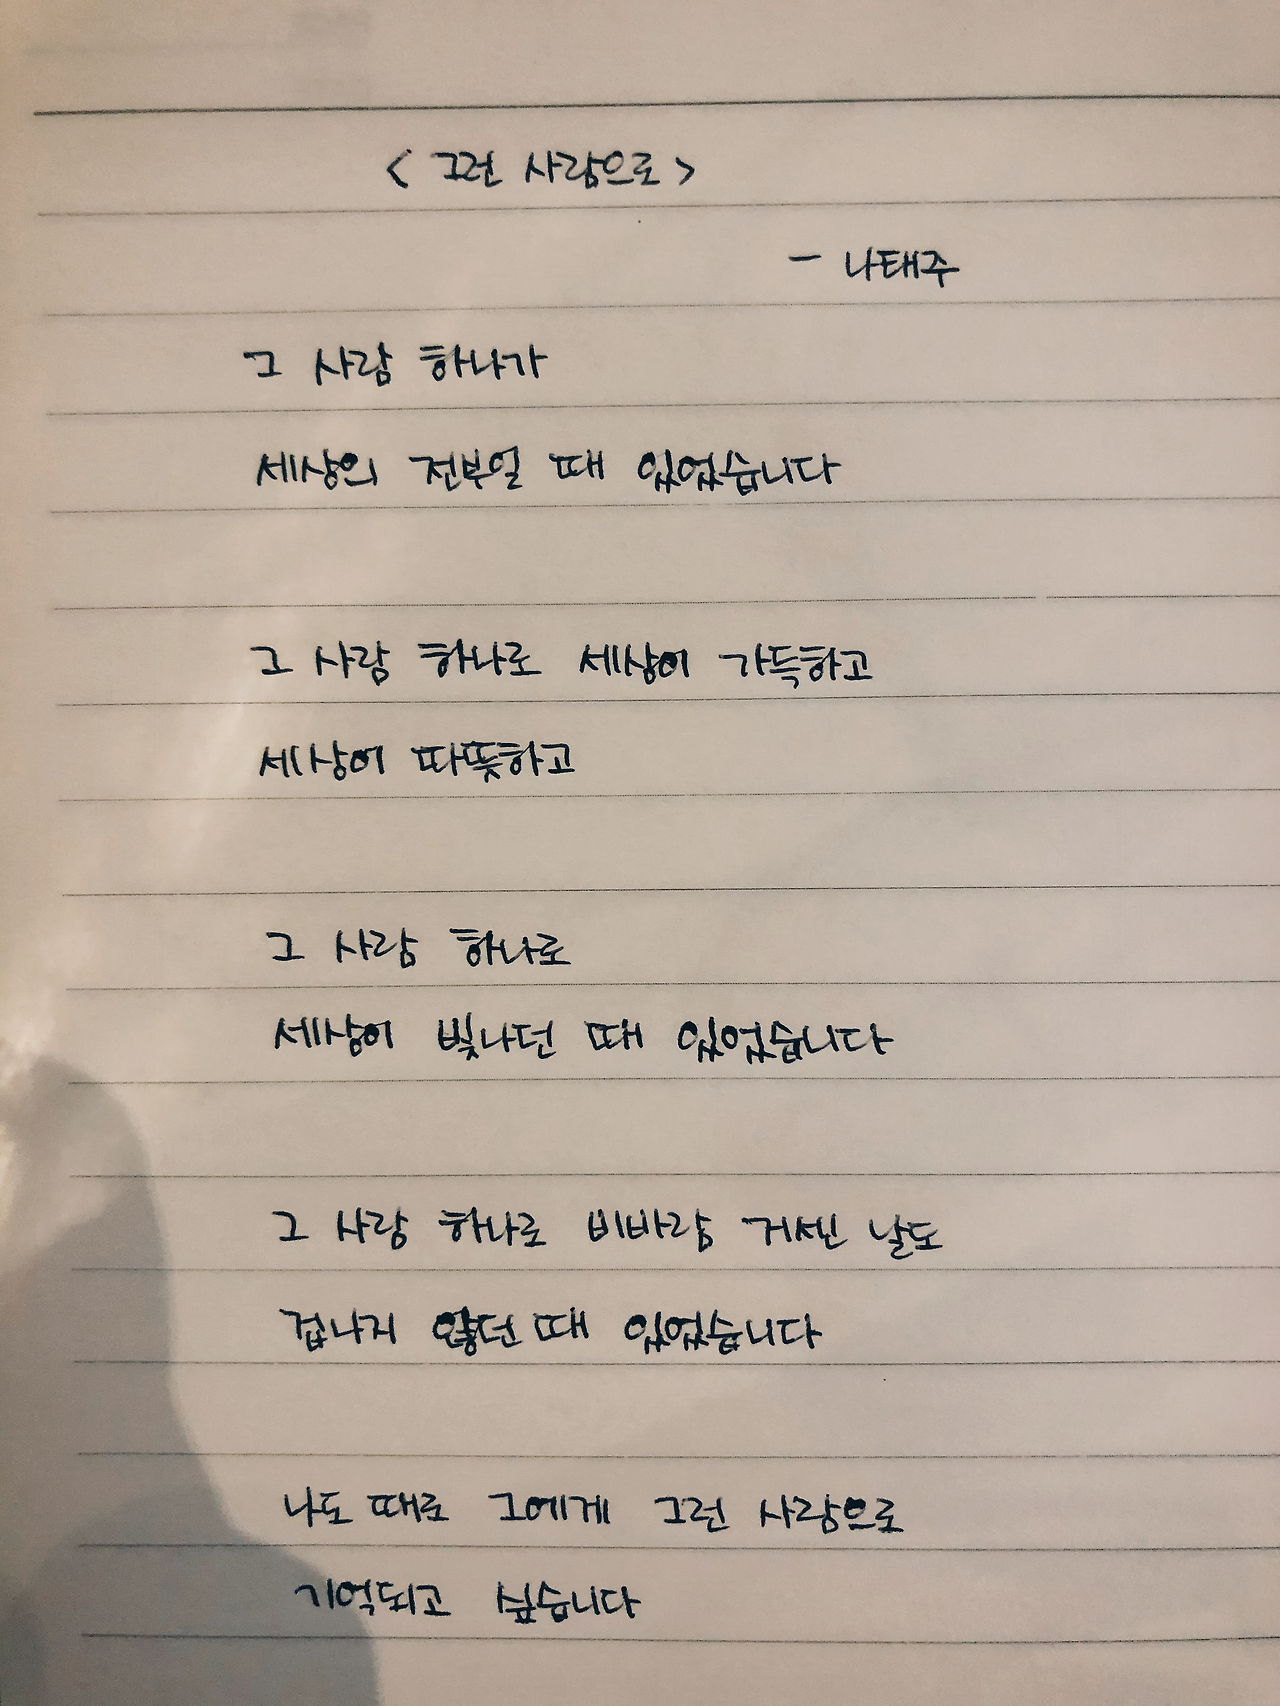 < 그런 사람으로 >
- 나태주
그 사람 하나가
세상의 전부일 때 있었습니다
그 사람 하나로 세상이 가득하고
세상이 따뜻하고
그 사람 하나로
세상이 빛나던 때 있었습니다
그 사람 하나로 비바람 거센 날도
겁나지 않던 때 있었습니다
나도 때로 그에게 그런 사람으로
기억되고 싶습니다